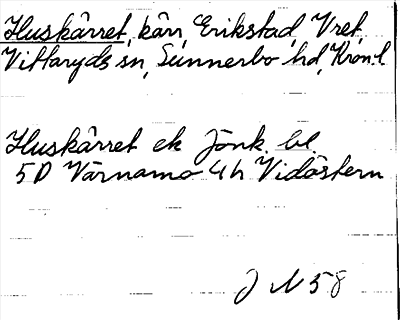 Huskärret, kärr, Erikstad, Vret,
Vittaryds sn, Sunnerbo hd, Kron.l.
Huskärret ek Jönk. bl.
5D Värnamo 4h Vidöstern
J N 58